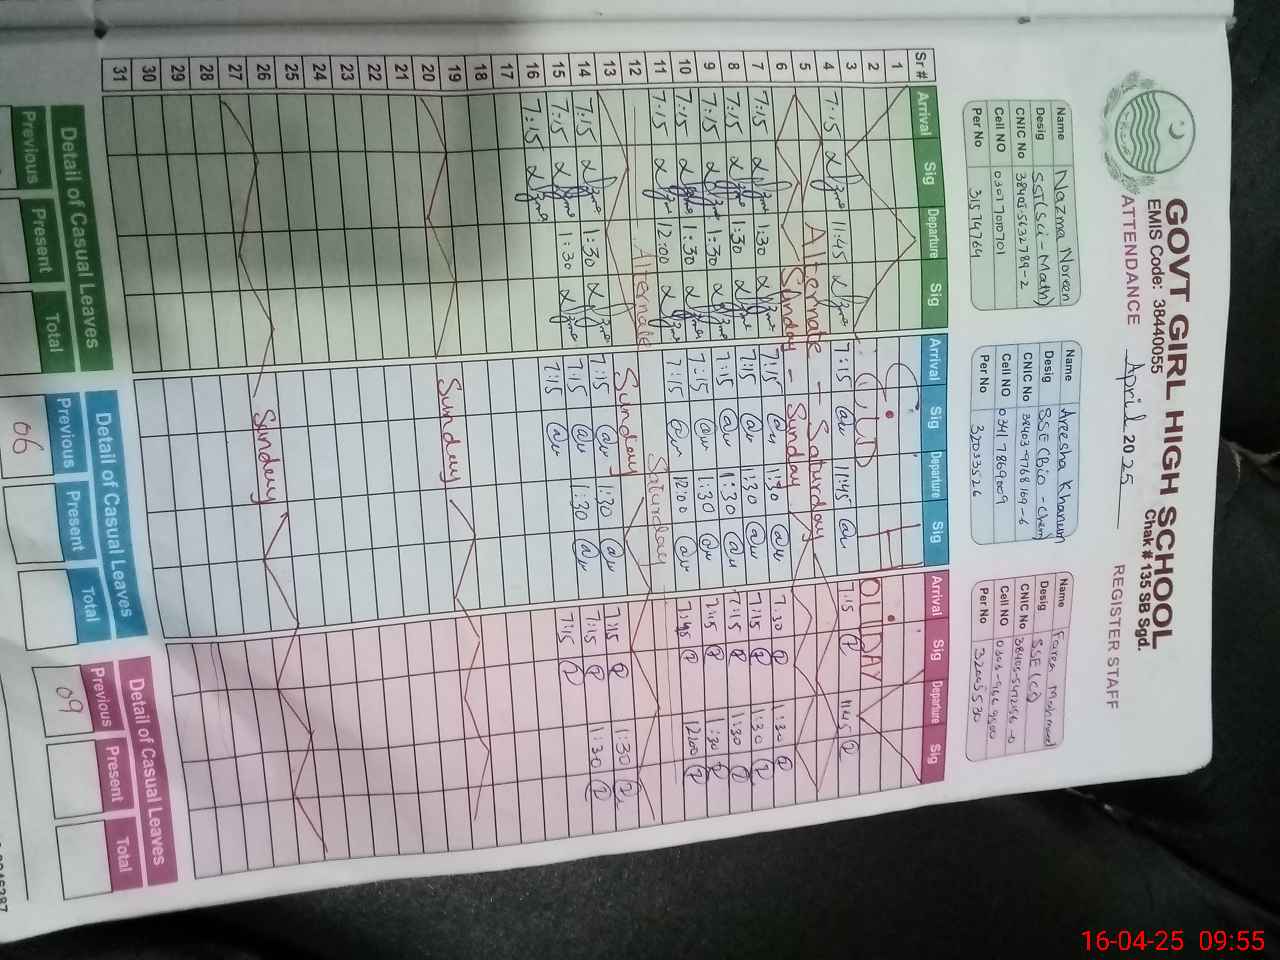 GOVT GIRL HIGH SCHOOL
EMIS Code: 38440055 Chak # 135 SB Sgd.
ATTENDANCE April 2025 REGISTER STAFF
Name Nazma Noreen
Desig SST(Sci-Math)
CNIC No 38405-5632789-2
Cell NO 03017010701
Per No 31574764
Name Areesha Khanum
Desig SSE(Bio-Chem)
CNIC No 38403-9768169-6
Cell NO 03417869009
Per No 32033526
Name
Desig SSE(CS)
CNIC No
Cell NO
Per No 32005530
Sr # Arrival Sig Departure Sig Arrival Sig Departure Sig Arrival Sig Departure Sig
1
2
HOLIDAY
3 7:15 11:45 7:15 11:45 7:15 11:45
4 Alternate - Saturday
5 Sunday - Sunday
6 7:15 1:30 7:15 1:30 7:30 1:30
7 7:15 1:30 7:15 1:30 7:15 1:30
8 7:15 1:30 7:15 1:30 7:15 1:30
9 7:15 1:30 7:15 1:30 7:15 1:30
10 7:15 12:00 7:15 12:00 7:45 12:00
11 Alternate Saturday
12 Sunday
13 7:15 1:30 7:15 1:30 7:15 1:30
14 7:15 1:30 7:15 1:30 7:15 1:30
15 7:15 7:15 7:15
16
17
18
19 Sunday
20
21
22
23
24
25
26 Sunday
27
28
29
30
31
Detail of Casual Leaves Detail of Casual Leaves Detail of Casual Leaves
Previous Present Total Previous Present Total Previous Present Total
06 09
16-04-25 09:55